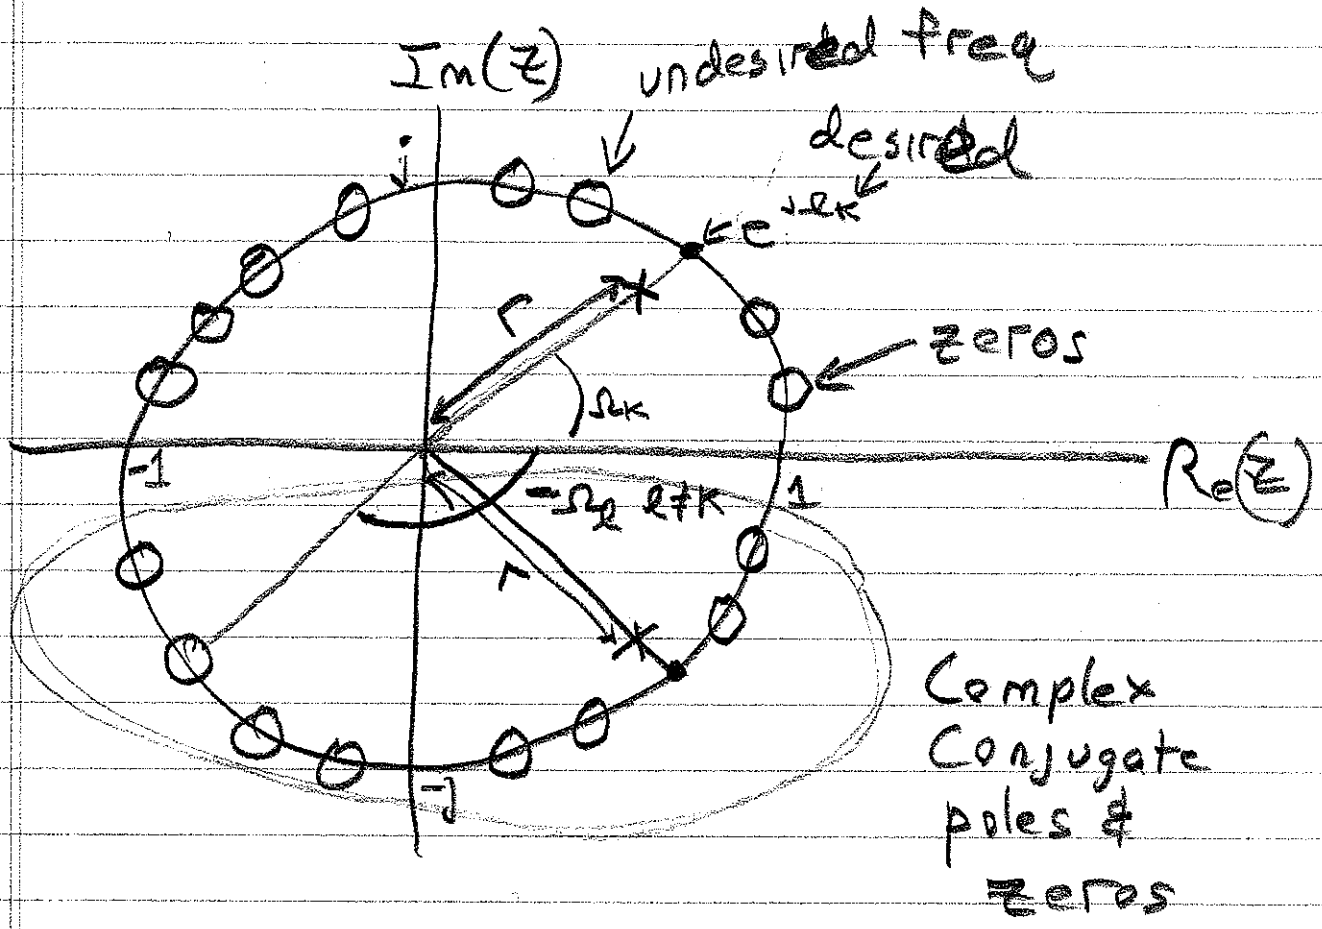 Im(z)
undesired freq
desired
j
e^jΩk
r
zeros
Ωk
-1
1
Re(z)
-Ωl l≠k
r
-j
Complex
Conjugate
poles &
zeros